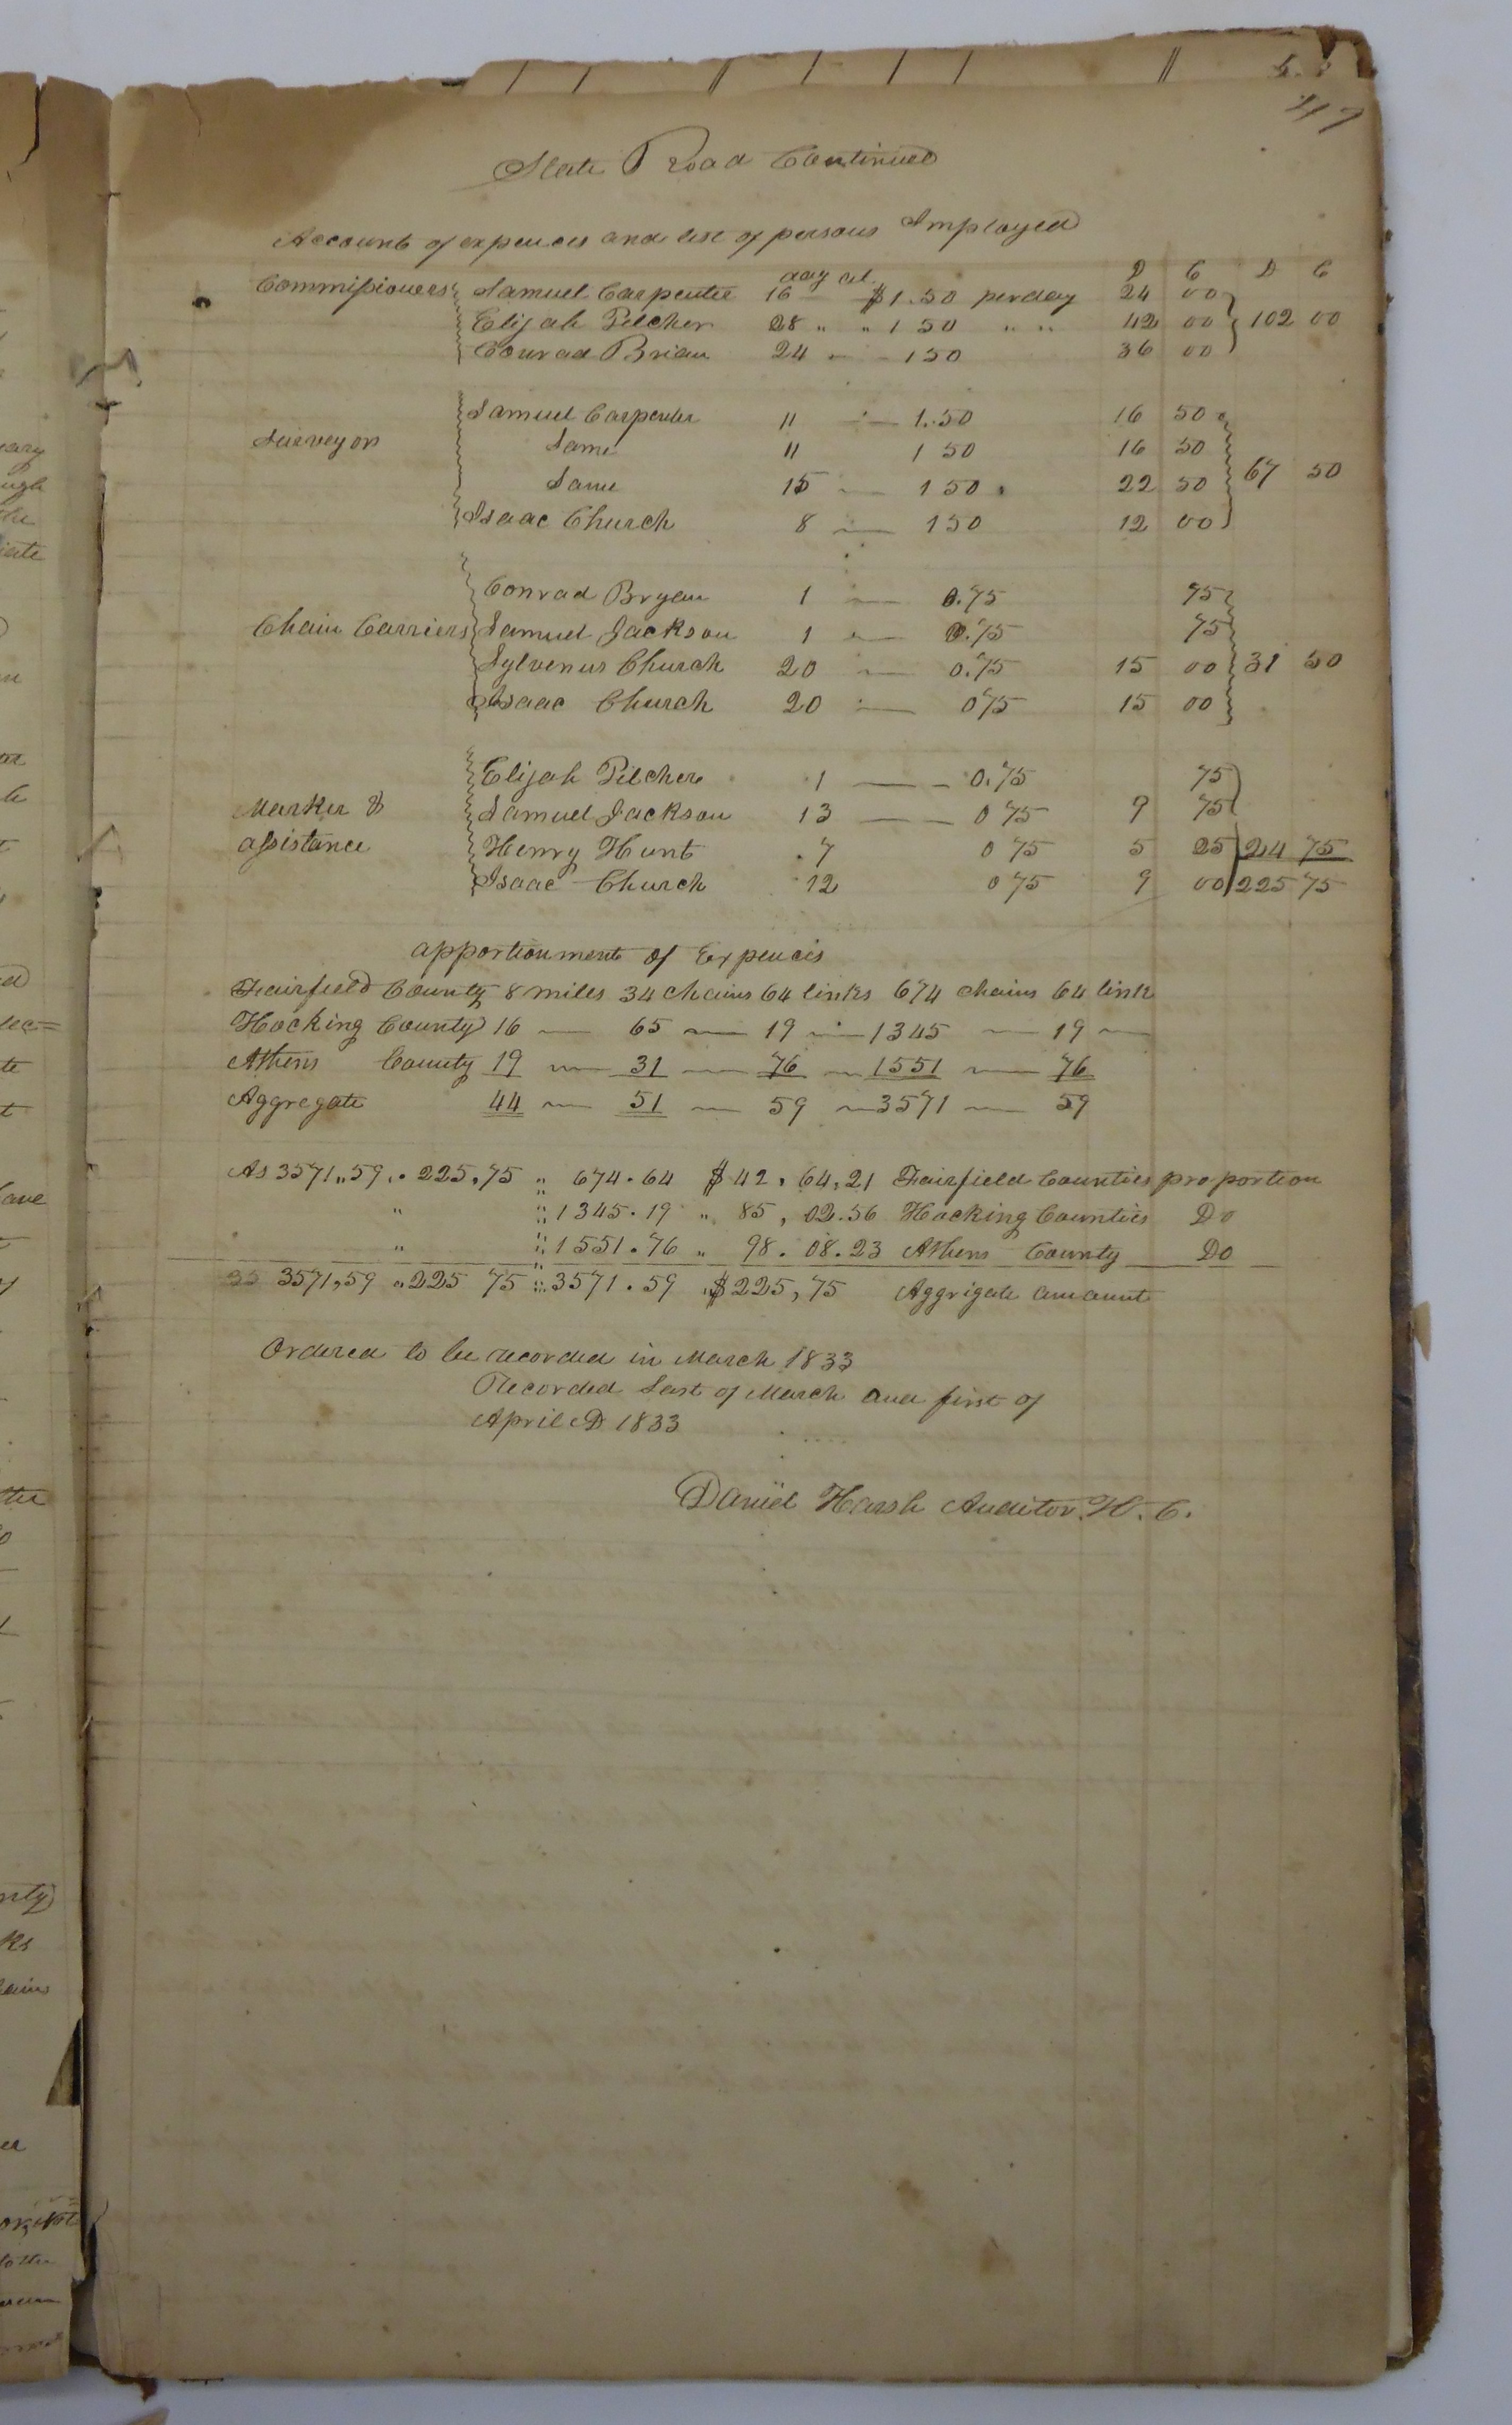 47
State Road Continued
Account of expences and list of persons Imployed
day at D C D C
Commissioners Samuel Carpenter 16 — $1.50 per day 24 00
Elijah Pilcher 28 " " 1 50 " " 42 00 102 00
Conrad Brian 24 — 150 36 00
Samuel Carpenter 11 — 1.50 16 50
Surveyor Same 11 1 50 16 50
Same 15 — 1 50 22 50 67 50
Isaac Church 8 — 150 12 00
Conrad Bryan 1 — 0.75 75
Chain Carriers Samuel Jackson 1 — 0.75 75
Sylvenus Church 20 — 0.75 15 00 31 50
Isaac Church 20 — 075 15 00
Elijah Pilcher 1 — 0.75 75
Marker & Samuel Jackson 13 — 0 75 9 75
assistance Henry Hunt 7 0 75 5 25 24 75
Isaac Church 12 0 75 9 00 225 75
apportionment of Expencis
Fairfield County 8 miles 34 chains 64 links 674 chains 64 link
Hocking County 16 — 65 — 19 — 1345 — 19 —
Athens County 19 — 31 — 76 — 1551 — 76
Aggregate 44 — 51 — 59 — 3571 — 59
As 3571,,59 .. 225,75 :: 674.64 $42,64,21 Fairfield Counties proportion
" :: 1345.19 " 85,02.56 Hocking Counties Do
" :: 1551.76 " 98.08.23 Athens County Do
3571,59 " 225 75 :: 3571.59 " $225,75 Aggrigate amount
Ordered to be recorded in March 1833
Recorded Last of March and first of
April AD 1833
Daniel Harsh Auditor. H. C.